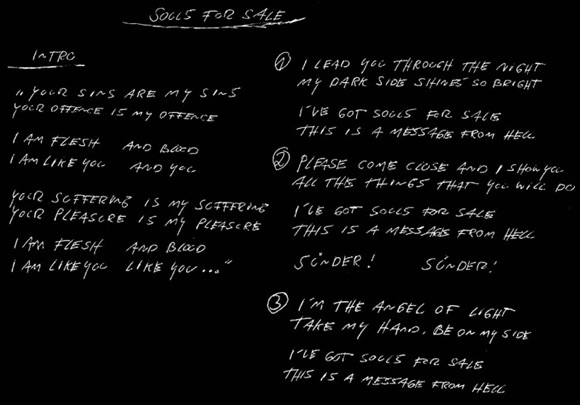 SOULS FOR SALE
INTRO
"YOUR SINS ARE MY SINS
YOUR OFFENCE IS MY OFFENCE
I AM FLESH AND BLOOD
I AM LIKE YOU AND YOU
YOUR SUFFERING IS MY SUFFERING
YOUR PLEASURE IS MY PLEASURE
I AM FLESH AND BLOOD
I AM LIKE YOU LIKE YOU..."
1 I LEAD YOU THROUGH THE NIGHT
MY DARK SIDE SHINES SO BRIGHT
I'VE GOT SOULS FOR SALE
THIS IS A MESSAGE FROM HELL
2 PLEASE COME CLOSE AND I SHOW YOU
ALL THE THINGS THAT YOU WILL DO
I'VE GOT SOULS FOR SALE
THIS IS A MESSAGE FROM HELL
SÜNDER! SÜNDER!
3 I'M THE ANGEL OF LIGHT
TAKE MY HAND, BE ON MY SIDE
I'VE GOT SOULS FOR SALE
THIS IS A MESSAGE FROM HELL